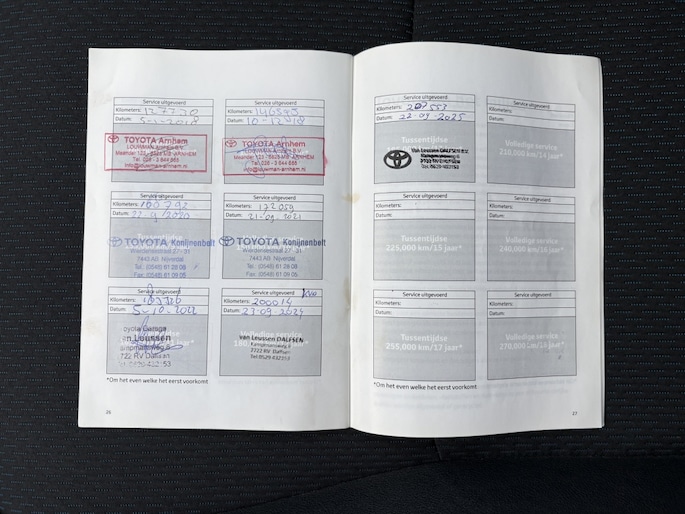 Service uitgevoerd
Kilometers: 127730
Datum: 5-2-2018
TOYOTA Arnhem
LOUWMAN ARNHEM B.V.
Tel. 026 - 3 644 865
info@louwman-arnhem.nl
Service uitgevoerd
Kilometers: 146545
Datum: 10-12-2018
TOYOTA Arnhem
LOUWMAN Arnhem B.V.
Tel. 026 - 3 644 865
info@louwman-arnhem.nl
Service uitgevoerd
Kilometers: 160792
Datum: 22-9/2020
TOYOTA Konijnenbelt
Wierdensestraat 27 - 31
7443 AB Nijverdal
Tel. (0548) 61 28 09
Fax (0548) 61 09 05
Service uitgevoerd
Kilometers: 172059
Datum: 21-09-2021
TOYOTA Konijnenbelt
Wierdensestraat 27 - 31
7443 AB Nijverdal
Tel. (0548) 61 28 09
Fax (0548) 61 09 05
Service uitgevoerd
Kilometers:
Datum: 5-10-2022
van Leussen
7722 RV Dalfsen
Service uitgevoerd
Kilometers: 200014
Datum: 23-09-2024
Volledige service
van Leussen DALFSEN
7722 RV Dalfsen
Tel. 0529-432153
*Om het even welke het eerst voorkomt
26
Service uitgevoerd
Kilometers: 207553
Datum: 22-09-2025
Tussentijdse
Van Leussen DALFSEN
7722 RV Dalfsen
Service uitgevoerd
Kilometers:
Datum:
Volledige service
210,000 km/14 jaar*
Service uitgevoerd
Kilometers:
Datum:
Tussentijdse
225,000 km/15 jaar*
Service uitgevoerd
Kilometers:
Datum:
Volledige service
240,000 km/16 jaar*
Service uitgevoerd
Kilometers:
Datum:
Tussentijdse
255,000 km/17 jaar*
Service uitgevoerd
Kilometers:
Datum:
Volledige service
270,000 km/18 jaar*
*Om het even welke het eerst voorkomt
27